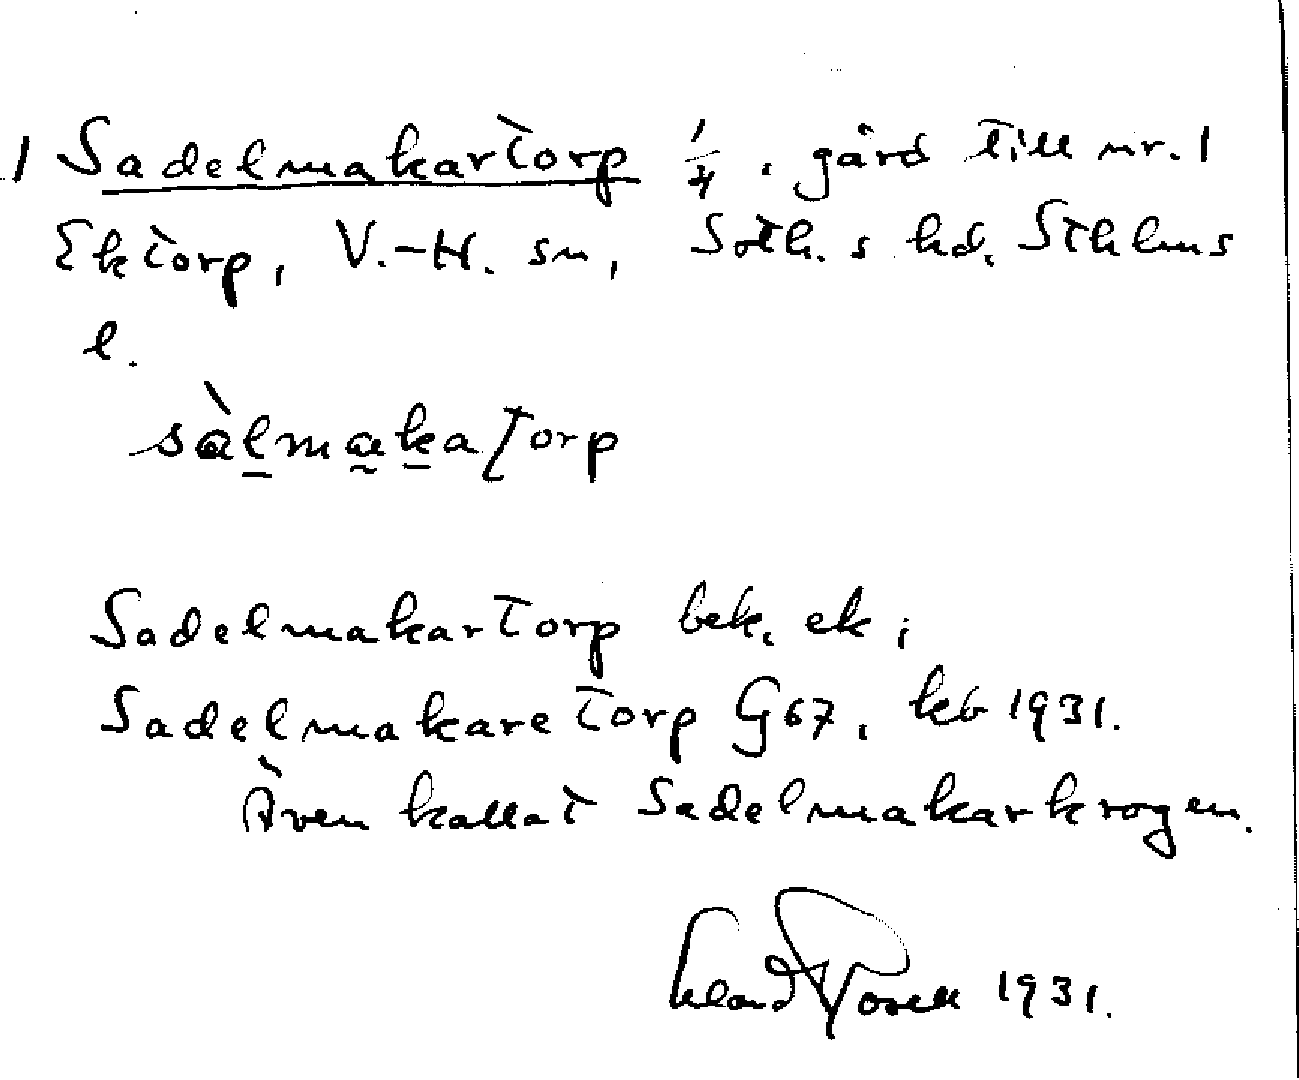 1 Sadelmakartorp 1/4, gård till nr. 1
Ektorp, V.-H. sn, Soth. s hd, Sthlms
l.
sàlmakatorp
Sadelmakartorp bek. ek;
Sadelmakaretorp G67, kb 1931.
Även kallat Sadelmakarkrogen.
1931.